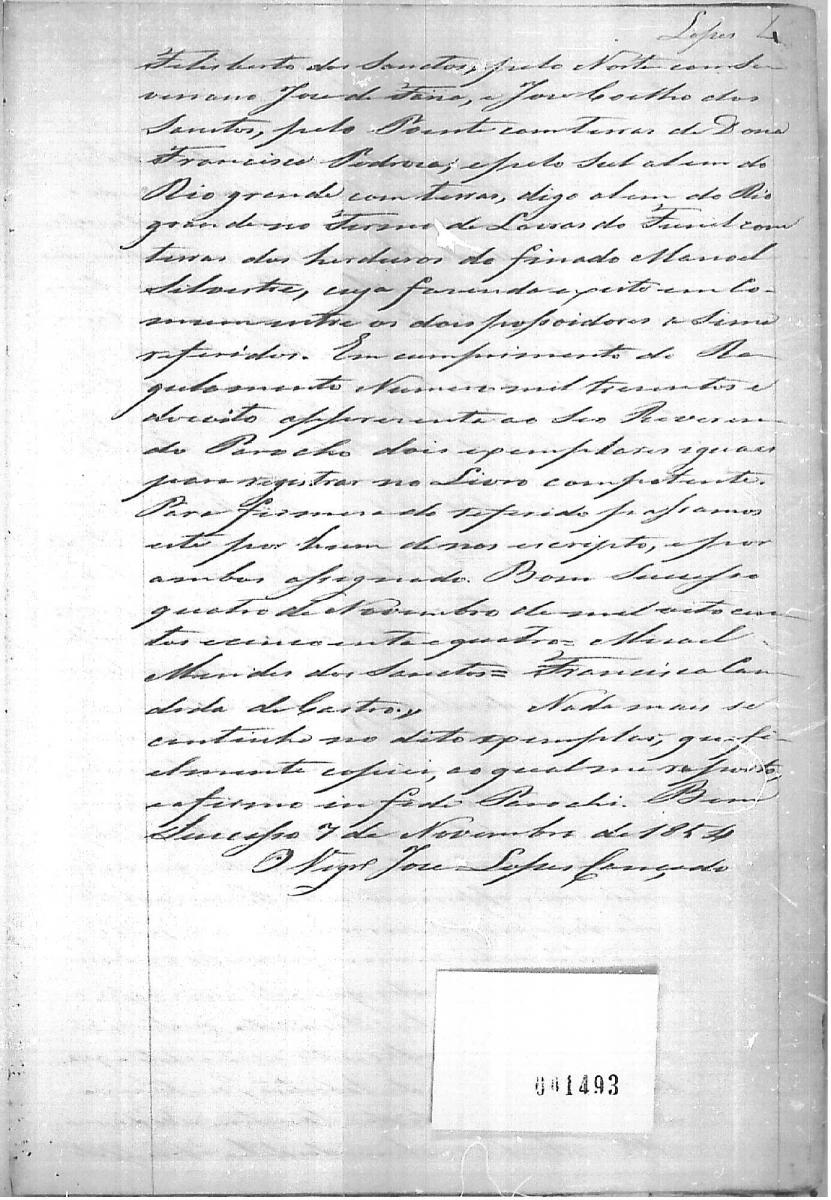 Lopes 4
Felisberto dos Sanctos, pelo Norte com Se
veriano Jose de Faria, e Jose Coelho dos
Sanctos, pelo Poente com terras de Dona
Francisca Pedroza; e pelo Sul alem do
Rio grande com terras, digo alem do Rio
grande no Termo de Lavras do Funil com
terras dos herdeiros do finado Manoel
Silvestre, cuja fazenda exposto em Co-
mum entre os dois possoidores a Sima
referidos. Em cumprimento do Re
gulamento Numero mil trezentos e
dezoito appresenta ao Seo Reveren
do Parocho dois exemplares iguaes
para registrar no Livro competente.
Para firmeza do referido passamos
este por hum de nos escripto, e por
ambos assignado. Bom Sucesso
quatro de Novembro de mil oito cen
tos e cincoenta e quatro = Misael
Mendes dos Sanctos = Francisca Can
dida de Castro,, Nada mais se
continha no dito exemplar, que fi
elmente copiei, ao qual me reporto,
e afirmo in fide Parochi. Bom
Sucesso 7 de Novembro de 1854
O Vigrº Jose Lopes Cançado
001493